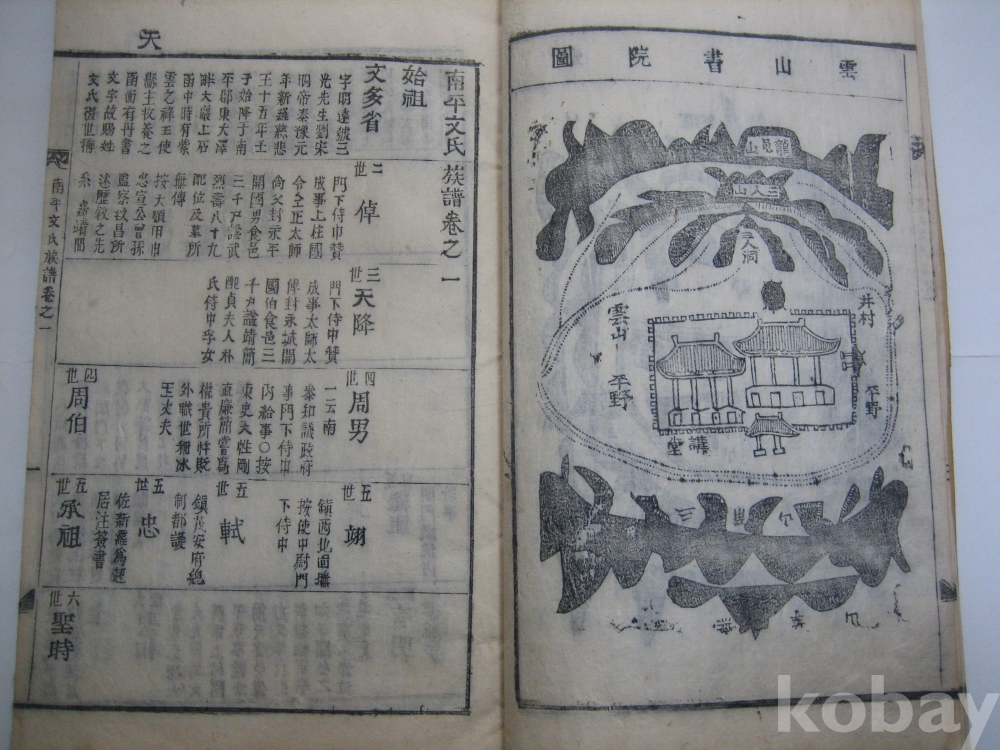 雲山書院圖
龍邑山
三人山
三人洞
井村
雲山
平野
平野
講堂
天
南平文氏族譜卷之一
始祖
文多省
字明遠號三
光先生劉宋
明帝泰豫元
年新羅慈悲
王十五年壬
子始降于南
平郡東大澤
畔大巖上石
函中時有紫
雲之祥王使
縣主收養之
函面有丹書
文字故賜姓
文氏
二世
倬
門下侍中贊
成事上柱國
金太師
尙父封永平
開國男食邑
三千戶諡武
烈壽八十九
配位及墓所
無傳
按大順甲申
忠宣公曾孫
監察
述歷敘之先
系
三世
天降
門下侍中贊
成事太師太
傅封
國伯食邑三
千戶諡靖簡
配貞夫人朴
氏侍中
四世
周男
一云南
泰知議政府
事門下侍中
內給事〇按
東史文性剛
直廉簡嘗爲
權貴所
外職世稱冰
王丈夫
四世
周伯
五世
翊
鎭西北面
按使中尉門
下侍中
五世
軾
鎭茂安府總
制都護
五世
忠
佐新羅爲
居注簽書
五世
承祖
六世
聖時
南平文氏族譜卷之一
kobay